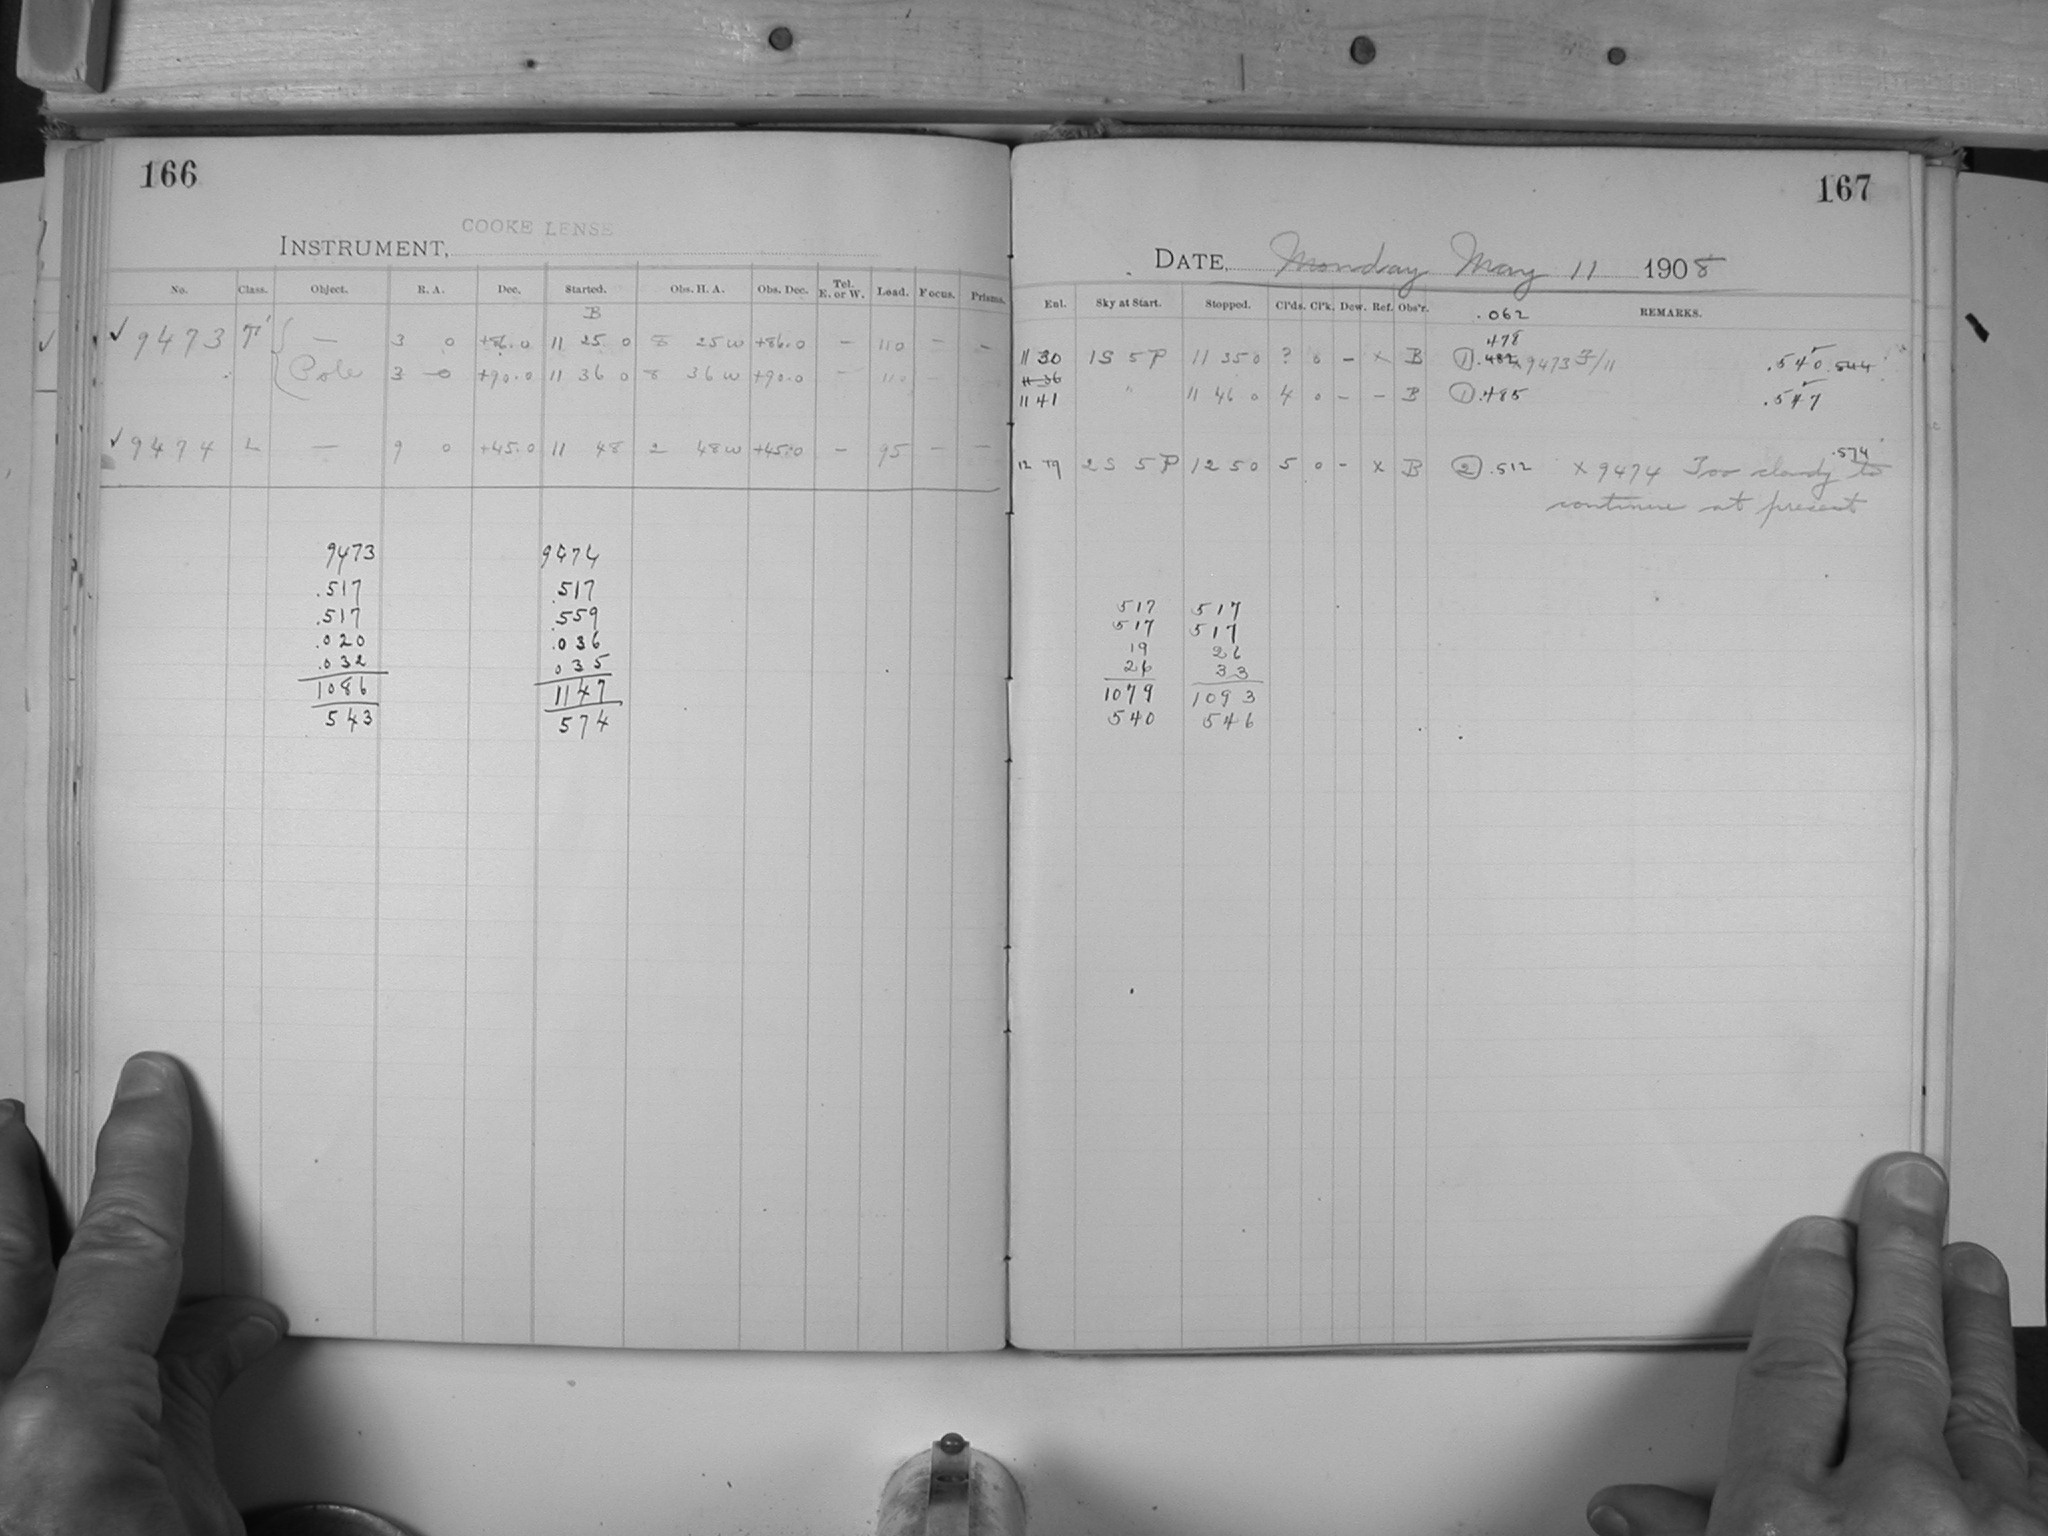 166
COOKE LENSE
INSTRUMENT,
No. Class. Object. R. A. Dec. Started. Obs. H. A. Obs. Dec. Tel. E. or W. Load. Focus. Prisms.
B
✓ 9473 T' { — 3 0 +86.0 11 25 0 8 25 W +86.0 — 110 — —
Pole 3 0 +90.0 11 36 0 8 36 W +90.0 — 110 —
✓ 9474 L — 9 0 +45.0 11 48 2 48 W +45.0 — 95 — —
9473 9474
.517 .517
.517 .559
.020 .036
.032 .035
1086 1147
543 574
167
DATE, Monday May 11 1908
Enl. Sky at Start. Stopped. Cl'ds. Cl'k. Dew. Ref. Obs'r. REMARKS.
.062
.478
11 30 1S 5P 11 35 0 ? 0 — x B ① x 9473 /11 .540 .544
11 36
11 41 " 11 46 0 4 0 — — B ① .485 .547
.574
12 19 2S 5P 12 50 5 0 — x B ② .512 x 9474 Too cloudy to
continue at present
517 517
517 517
19 26
26 33
1079 1093
540 546